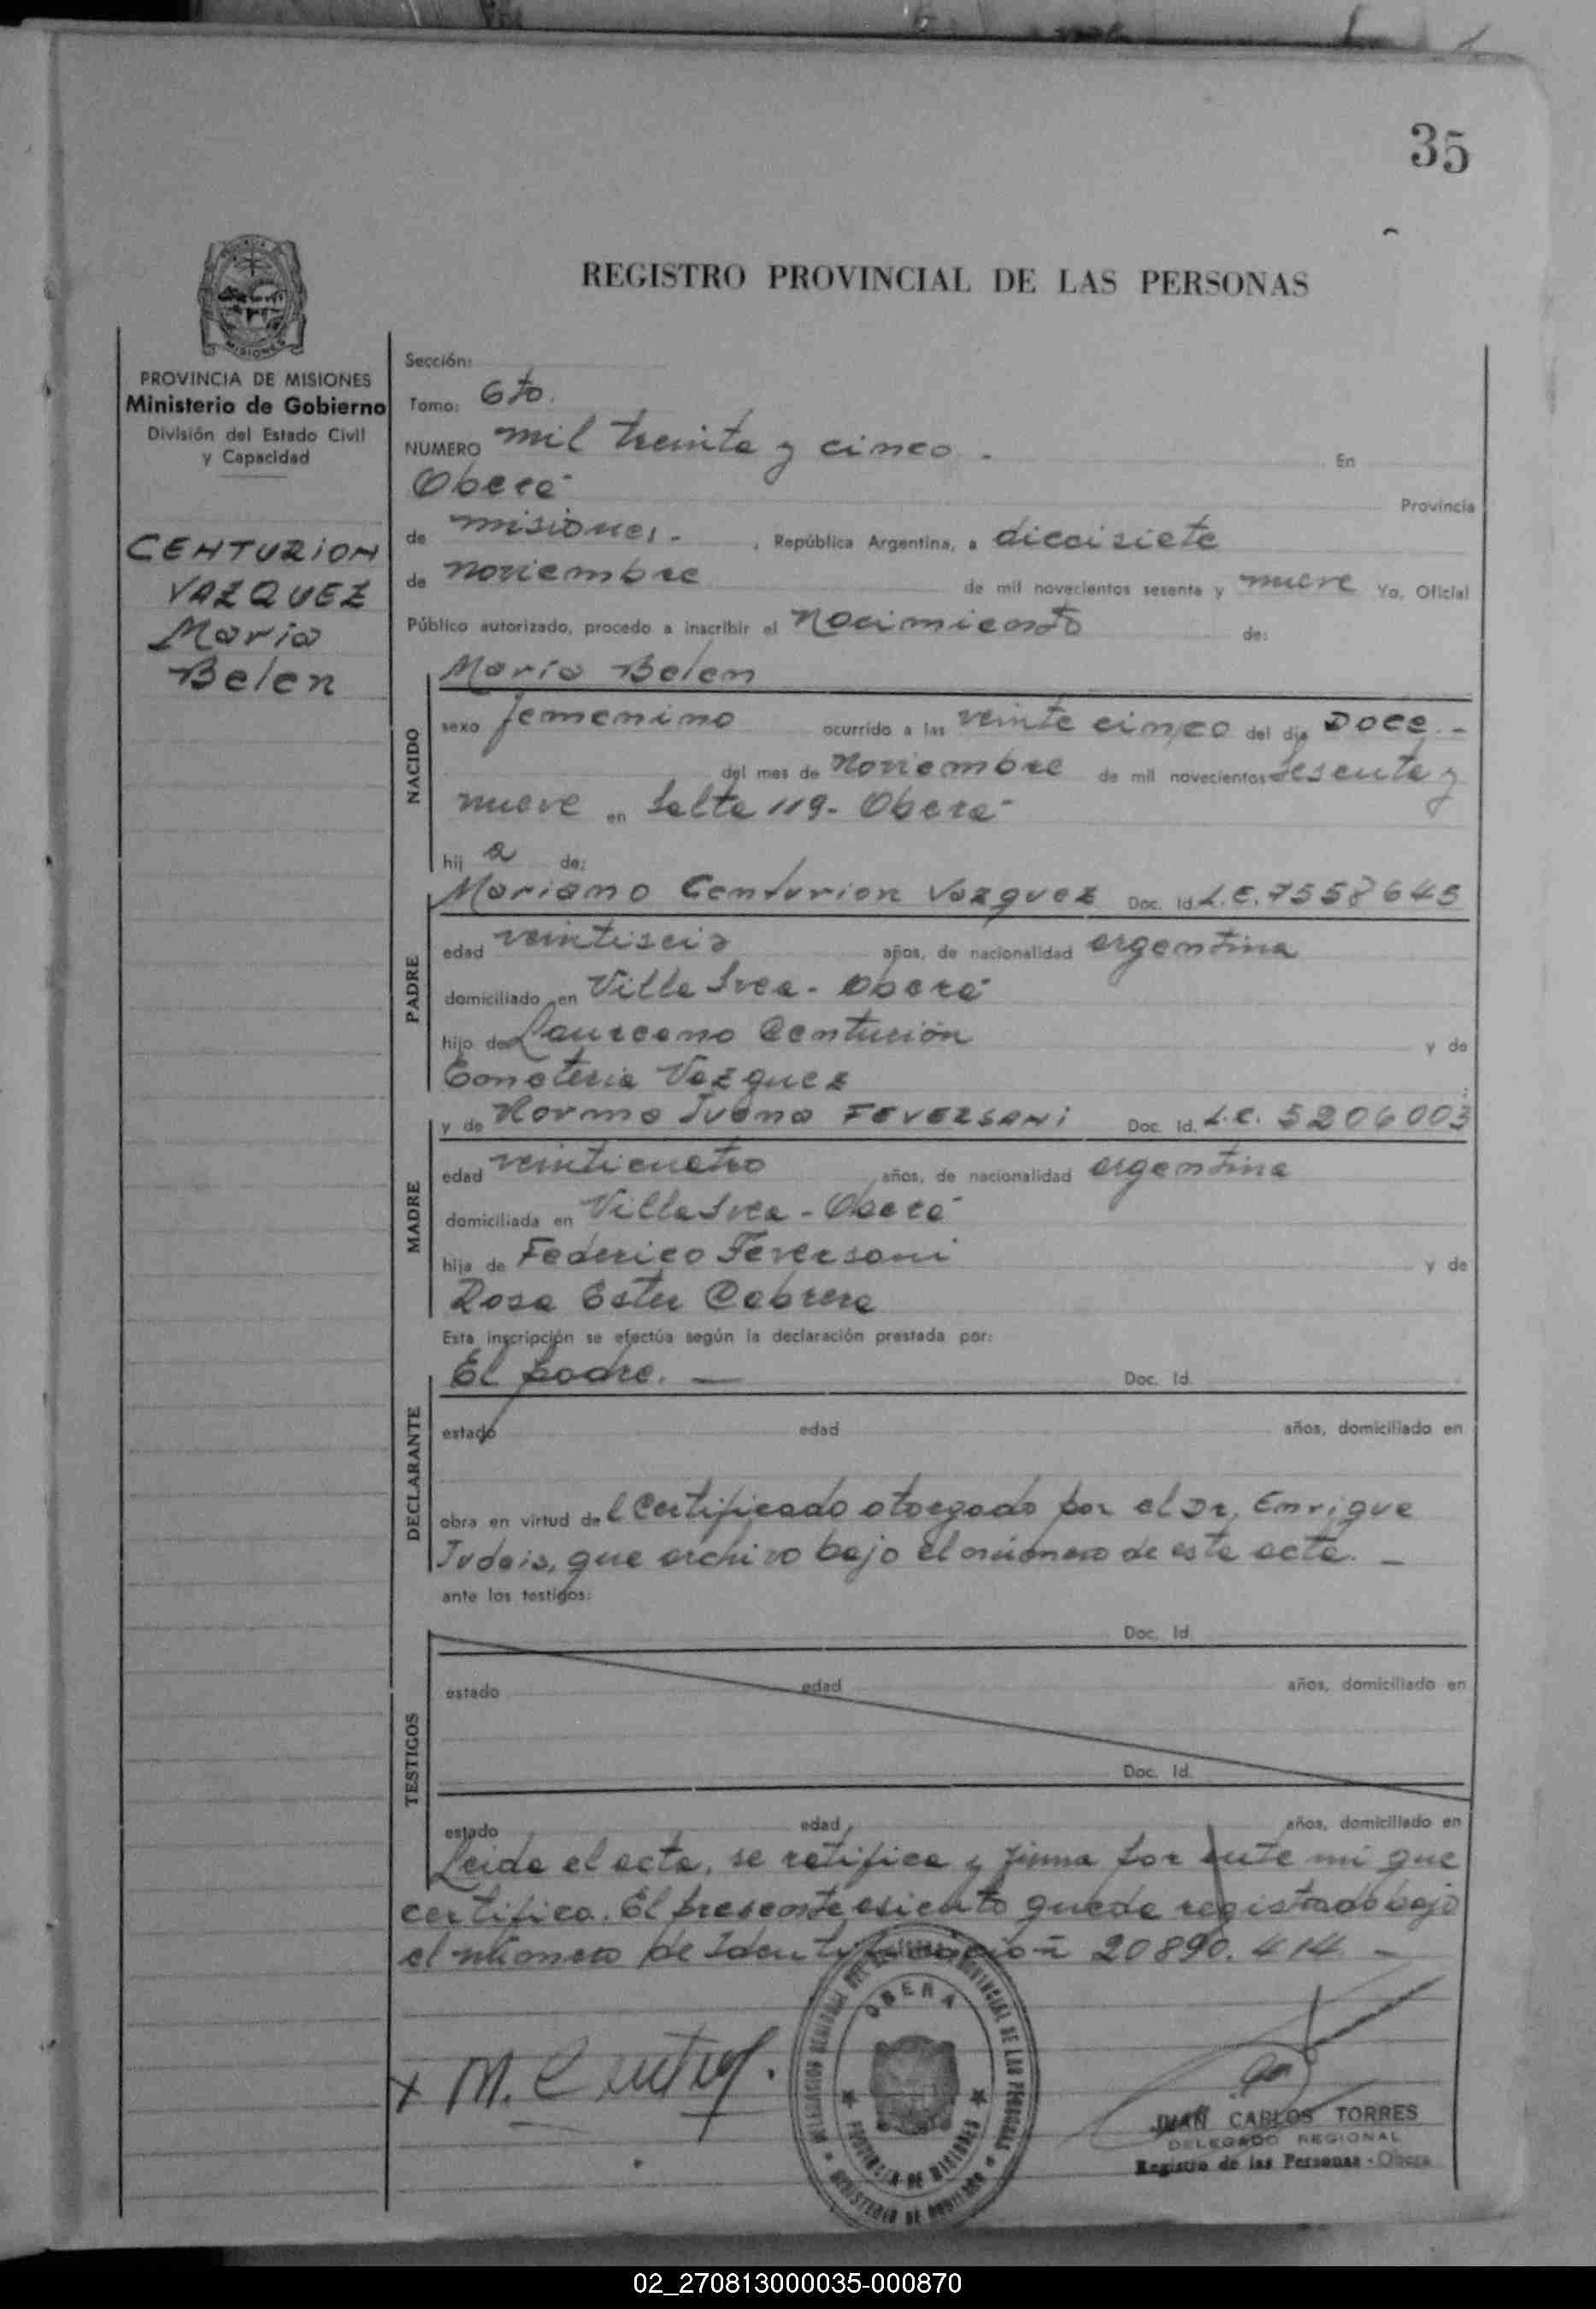 35
REGISTRO PROVINCIAL DE LAS PERSONAS
MISIONES
PROVINCIA DE MISIONES
Ministerio de Gobierno
División del Estado Civil
y Capacidad
CENTURION
VAZQUEZ
Maria
Belen
Sección:
Tomo: 6to.
NUMERO mil treinta y cinco. En
Oberá Provincia
de misiones. , República Argentina, a diecisiete
de noviembre de mil novecientos sesenta y nueve Yo, Oficial
Público autorizado, procedo a inscribir el Nacimiento de:
NACIDO
María Belen
sexo femenino ocurrido a las veinte cinco del día DOCE.-
del mes de Noviembre de mil novecientos sesenta y
nueve en Salta 119- Oberá
hij a de:
PADRE
Mariano Centurion Vazquez Doc. Id. L.E. 7558645
edad veintiseis años, de nacionalidad argentina
domiciliado en Villa Svea - Oberá
hijo de Laureano Centurión y de
Vazquez
MADRE
y de Norma Ivona FEVERSANI Doc. Id. L.C. 5206003
edad veinticuatro años, de nacionalidad argentina
domiciliada en Villa Svea - Oberá
hija de Federico Feversani y de
Rosa Ester Cabrera
Esta inscripción se efectúa según la declaración prestada por:
DECLARANTE
El padre. — Doc. Id.
estado edad años, domiciliado en
obra en virtud de l Certificado otorgado por el Dr. Enrique
Judais, que archivo bajo el número de este acta. -
ante los testigos:
TESTIGOS
Doc. Id.
estado edad años, domiciliado en
Doc. Id.
estado edad años, domiciliado en
Leida el acta, se ratifica y firma por ante mi que
certifico. El presente asiento queda registrado bajo
el número de Identificación 20890.414. -
x M.
OBERA
PROVINCIA DE MISIONES
JUAN CARLOS TORRES
DELEGADO REGIONAL
Registro de las Personas - Obera
02_270813000035-000870